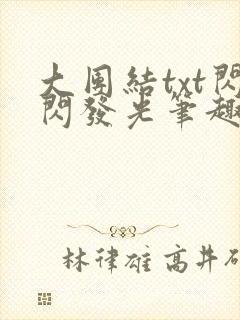 大團結txt閃
閃發光筆趣
林律雄 高井研